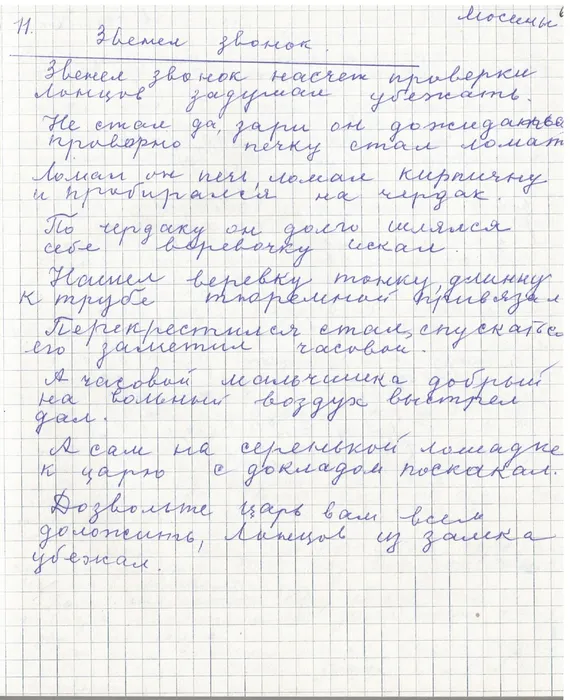 11.
Мосины
Звенел звонок.
Звенел звонок насчет проверки
Ланцов задумал убежать.
Не стал да, зари он дожидаться
проворно печку стал ломать
Ломал он печь, ломал кирпичну
и пробирался на чердак.
По чердаку он долго шлялся
себе веревочку искал.
Нашел веревку тонку, длинну
к трубе тюремной привязал
Перекрестился стал, спускаться
его заметил часовой.
А часовой мальчишка добрый
на вольный воздух выстрел
дал.
А сам на серенькой лошадке
к царю с докладом поскакал.
Дозвольте царь вам всем
доложить, Ланцов из замка
убежал.